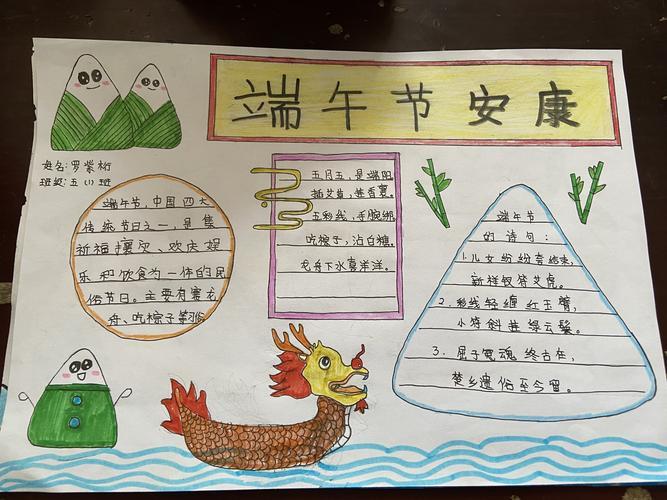 端午节安康
姓名:罗紫桁
班级:五(1)班
端午节,中国四大
传统节日之一,是集
祈福攘灾、欢庆娱
乐和饮食为一体的民
俗节日。主要有赛龙
舟、吃粽子等习俗
五月五,是端阳
插艾草,挂香囊。
五彩线,手腕绑。
吃粽子,沾白糖。
龙舟下水喜洋洋。
端午节
的诗句:
1.儿女纷纷夸结束,
新样钗符艾虎。
2.彩线轻缠红玉臂,
小符斜挂绿云鬟。
3.屈子冤魂终古在,
楚乡遗俗至今留。